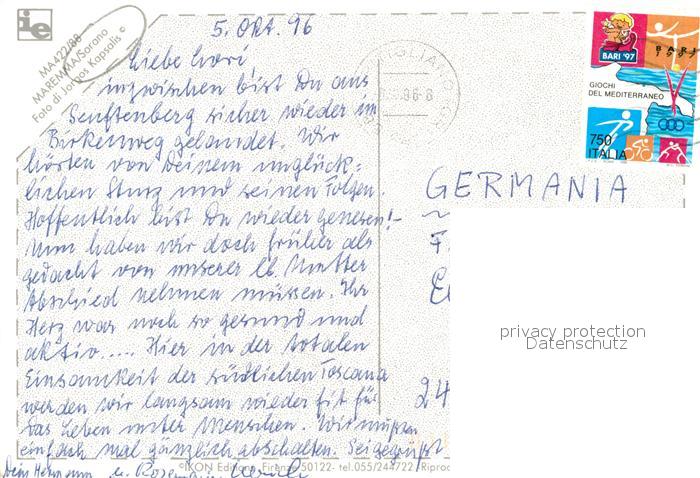 MA422/88
MAREMMA/Sorano
Foto di Jorgos Kapsalis ©
5. Okt. 96
Liebe Lori!
inzwischen bist Du aus
Senftenberg sicher wieder im
Birkenweg gelandet. Wir
hörten von Deinem unglück-
lichen Sturz und seinen Folgen.
Hoffentlich bist Du wieder genesen! –
Nun haben wir doch früher als
gedacht von unserer lb. Mutter
Abschied nehmen müssen. Ihr
Herz war noch so gesund und
aktiv.... Hier in der totalen
Einsamkeit der südlichen Toscana
werden wir langsam wieder fit für
das Leben unter Menschen. Wir mußten
einfach mal gänzlich abschalten. Sei gegrüßt
Dein Hermann u.
©IKON Editrice, Firenze 50122- tel.055/244722
BARI '97
BARI
GIOCHI
DEL MEDITERRANEO
750
ITALIA
GERMANIA
24
privacy protection
Datenschutz